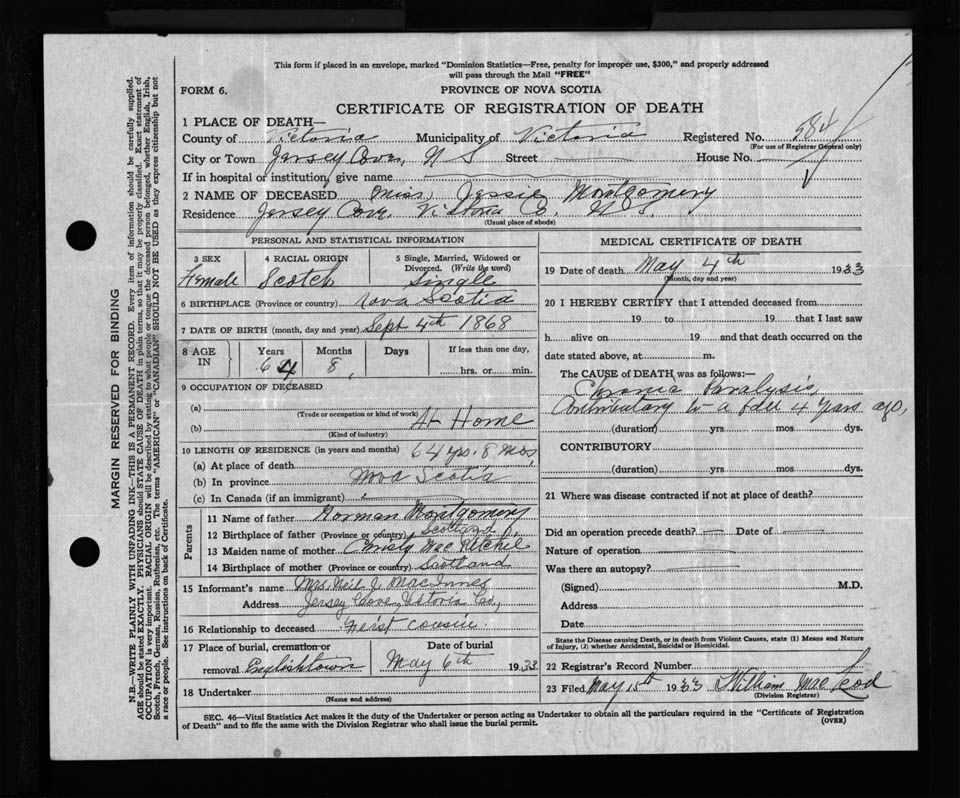 This form if placed in an envelope, marked "Dominion Statistics—Free, penalty for improper use, $300," and properly addressed
will pass through the Mail "FREE"
FORM 6.
PROVINCE OF NOVA SCOTIA
CERTIFICATE OF REGISTRATION OF DEATH
1 PLACE OF DEATH—
County of Victoria Municipality of Victoria Registered No. 584
(For use of Registrar General only)
City or Town Jersey Cove, N S Street House No.
If in hospital or institution, give name
2 NAME OF DECEASED Miss, Jessie Montgomery
Residence Jersey Cove Victoria Co. N. S.
(Usual place of abode)
PERSONAL AND STATISTICAL INFORMATION
3 SEX 4 RACIAL ORIGIN 5 Single, Married, Widowed or Divorced. (Write the word)
Female Scotch Single
6 BIRTHPLACE (Province or country) Nova Scotia
7 DATE OF BIRTH (month, day and year) Sept 4th 1868
8 AGE IN Years Months Days If less than one day,
64 8 hrs. or min.
9 OCCUPATION OF DECEASED
(a)
(Trade or occupation or kind of work)
(b) At Home
(Kind of industry)
10 LENGTH OF RESIDENCE (in years and months) 64 yrs. 8 mos,
(a) At place of death
(b) In province Nova Scotia
(c) In Canada (if an immigrant)
Parents
11 Name of father Norman Montgomery
12 Birthplace of father (Province or country) Scotland
13 Maiden name of mother Christy Mac Ritchie
14 Birthplace of mother (Province or country) Scotland
15 Informant's name Mrs. Neil J. MacInnes
Address Jersey Cove, Victoria Co,
16 Relationship to deceased First cousin
17 Place of burial, cremation or removal Englishtown
Date of burial May 6th 1933
18 Undertaker
(Name and address)
MEDICAL CERTIFICATE OF DEATH
19 Date of death May 4th 1933
(Month, day and year)
20 I HEREBY CERTIFY that I attended deceased from
19 to 19 that I last saw
h alive on 19 and that death occurred on the
date stated above, at m.
The CAUSE of DEATH was as follows:—
Chronic Paralysis,
Contributary to a fall 4 years ago,
(duration) yrs. mos. dys.
CONTRIBUTORY
(duration) yrs. mos. dys.
21 Where was disease contracted if not at place of death?
Did an operation precede death? Date of
Nature of operation
Was there an autopsy?
(Signed) M.D.
Address
Date
State the Disease causing Death, or in death from Violent Causes, state (1) Means and Nature
of Injury, (2) whether Accidental, Suicidal or Homicidal.
22 Registrar's Record Number
23 Filed May 15th 1933 William Mac Leod
(Division Registrar)
SEC. 46—Vital Statistics Act makes it the duty of the Undertaker or person acting as Undertaker to obtain all the particulars required in the "Certificate of Registration
of Death" and to file the same with the Division Registrar who shall issue the burial permit.
(OVER)
MARGIN RESERVED FOR BINDING
N.B.—WRITE PLAINLY WITH UNFADING INK—THIS IS A PERMANENT RECORD. Every item of information should be carefully supplied.
AGE should be stated EXACTLY. PHYSICIANS should STATE CAUSE OF DEATH in plain terms, so that it may be properly classified. Exact statement of
OCCUPATION is very important. RACIAL ORIGIN will be described by stating to what people or tongue the deceased person belonged, whether English, Irish,
Scotch, French, German, Russian, Ruthenian, etc. The terms "AMERICAN" or "CANADIAN" SHOULD NOT BE USED as they express citizenship but not
a race or people. See instructions on back of Certificate.